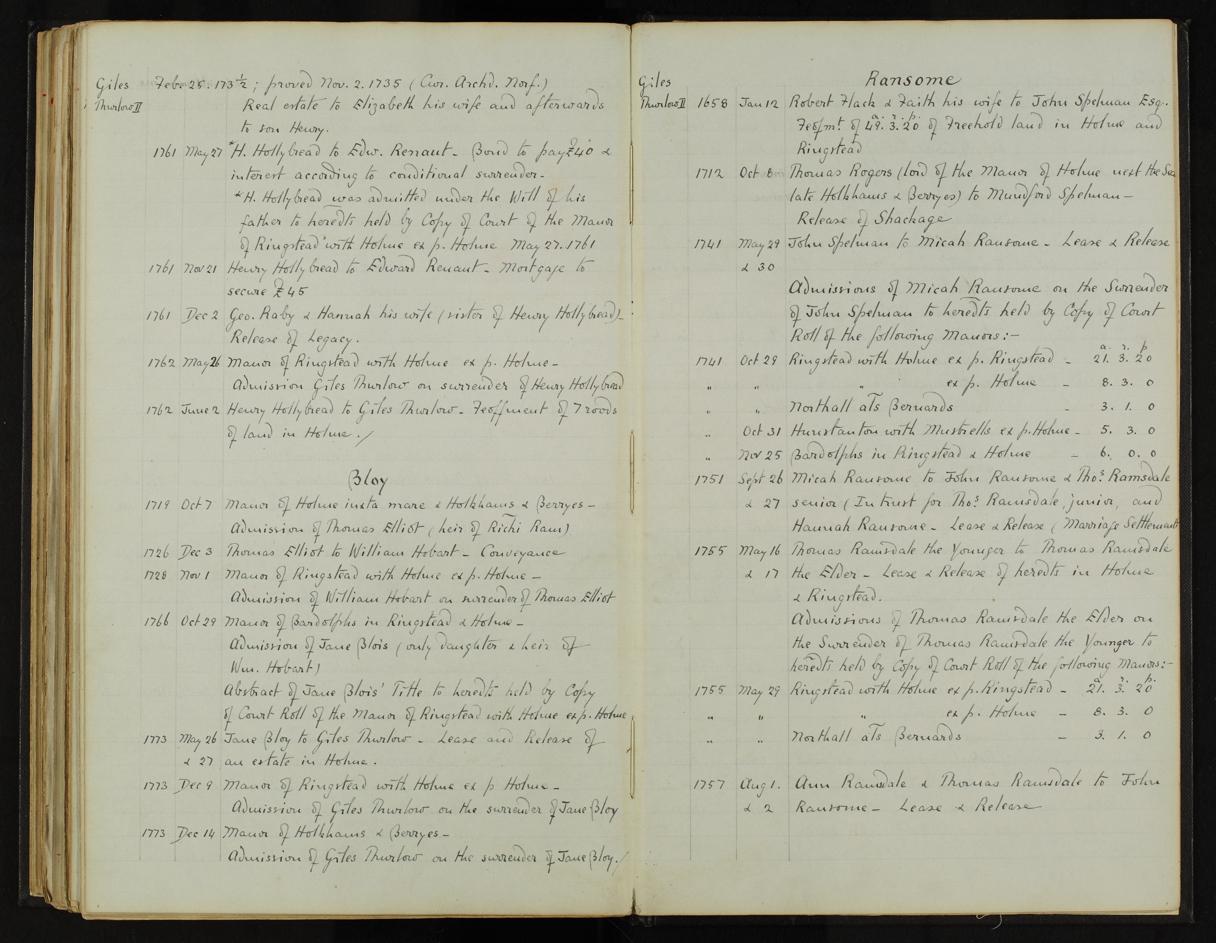 Giles Feb. 25. 173½ ; proved Nov. 2. 1735 (Cur. Archd. Norf.)
Thurlow II Real estate to Elizabeth his wife and afterwards
to son Henry.
1761 May 27 *H. Hollybread to Edw. Renaut - Bond to pay £40 &
interest according to conditional surrender -
*H. Hollybread was admitted under the Will of his
father to heredts held by Copy of Court of the Manor
of Ringstead with Holme ex p. Holme May 27. 1761
1761 Nov 21 Henry Hollybread to Edward Renaut - Mortgage to
secure £45
1761 Dec 2 Geo. Raby & Hannah his wife (sister of Henry Hollybread) -
Release of Legacy.
1762 May 26 Manor of Ringstead with Holme ex p. Holme -
Admission Giles Thurlow on surrender of Henry Hollybread
1762 June 2 Henry Hollybread to Giles Thurlow - Feoffment of 7 roods
of land in Holme ./
Bloy
1719 Oct 7 Manor of Holme iuxta mare & Holkhams & Berryes -
Admission of Thomas Elliot (heir of Richd Ram)
1726 Dec 3 Thomas Elliot to William Hobart - Conveyance
1728 Nov 1 Manor of Ringstead with Holme ex p. Holme -
Admission of William Hobart on surrender of Thomas Elliot
1766 Oct 29 Manor of Bardolphs in Ringstead & Holme -
Admission of Jane Blois (only daughter & heir of
Wm. Hobart)
Abstract of Jane Blois' Title to heredts held by Copy
of Court Roll of the Manor of Ringstead with Holme ex p. Holme
1773 May 26 Jane Bloy to Giles Thurlow - Lease and Release of
& 27 an estate in Holme.
1773 Dec 9 Manor of Ringstead with Holme ex p Holme -
Admission of Giles Thurlow on the surrender of Jane Bloy
1773 Dec 14 Manor of Holkhams & Berryes -
Admission of Giles Thurlow on the surrender of Jane Bloy./
Giles Ransome
Thurlow II 1658 Jan 12 Robert Flack & Faith his wife to John Spelman Esq.
Feofmt. of a. 49. r. 3. p. 20 of Freehold land in Holme and
Ringstead
1712 Oct 8 Thomas Rogers (lord of the Manor of Holme next the Sea
late Holkhams & Berryes) to Mundford Spelman -
Release of Shackage
1741 May 29 John Spelman to Micah Ransome - Lease & Release
& 30
Admissions of Micah Ransome on the Surrender
of John Spelman to heredts held by Copy of Court
Roll of the following Manors:-
a. r. p
1741 Oct 29 Ringstead with Holme ex p. Ringstead - 21. 3. 20
" " " ex p. Holme - 8. 3. 0
" " Northall als Bernards - 3. 1. 0
" Oct 31 Hunstanton with Mustrells ex p. Holme - 5. 3. 0
" Nov 25 Bardolphs in Ringstead & Holme - 6. 0. 0
1751 Sept 26 Micah Ransome to John Ransome & Thos. Ramsdale
& 27 senior (In trust for Thos. Ramsdale, junior, and
Hannah Ransome - Lease & Release (Marriage Settlement
1755 May 16 Thomas Ramsdale the Younger to Thomas Ramsdale
& 17 the Elder - Lease & Release of heredts in Holme
& Ringstead.
Admissions of Thomas Ramsdale the Elder on
the Surrender of Thomas Ramsdale the Younger to
heredts held by Copy of Court Roll of the following Manors:-
a. r. p.
1755 May 29 Ringstead with Holme ex p. Ringstead - 21. 3. 20
" " " ex p. Holme - 8. 3. 0
" " Northall als Bernards - 3. 1. 0
1757 Aug 1. Ann Ramsdale & Thomas Ramsdale to John
& 2 Ransome - Lease & Release